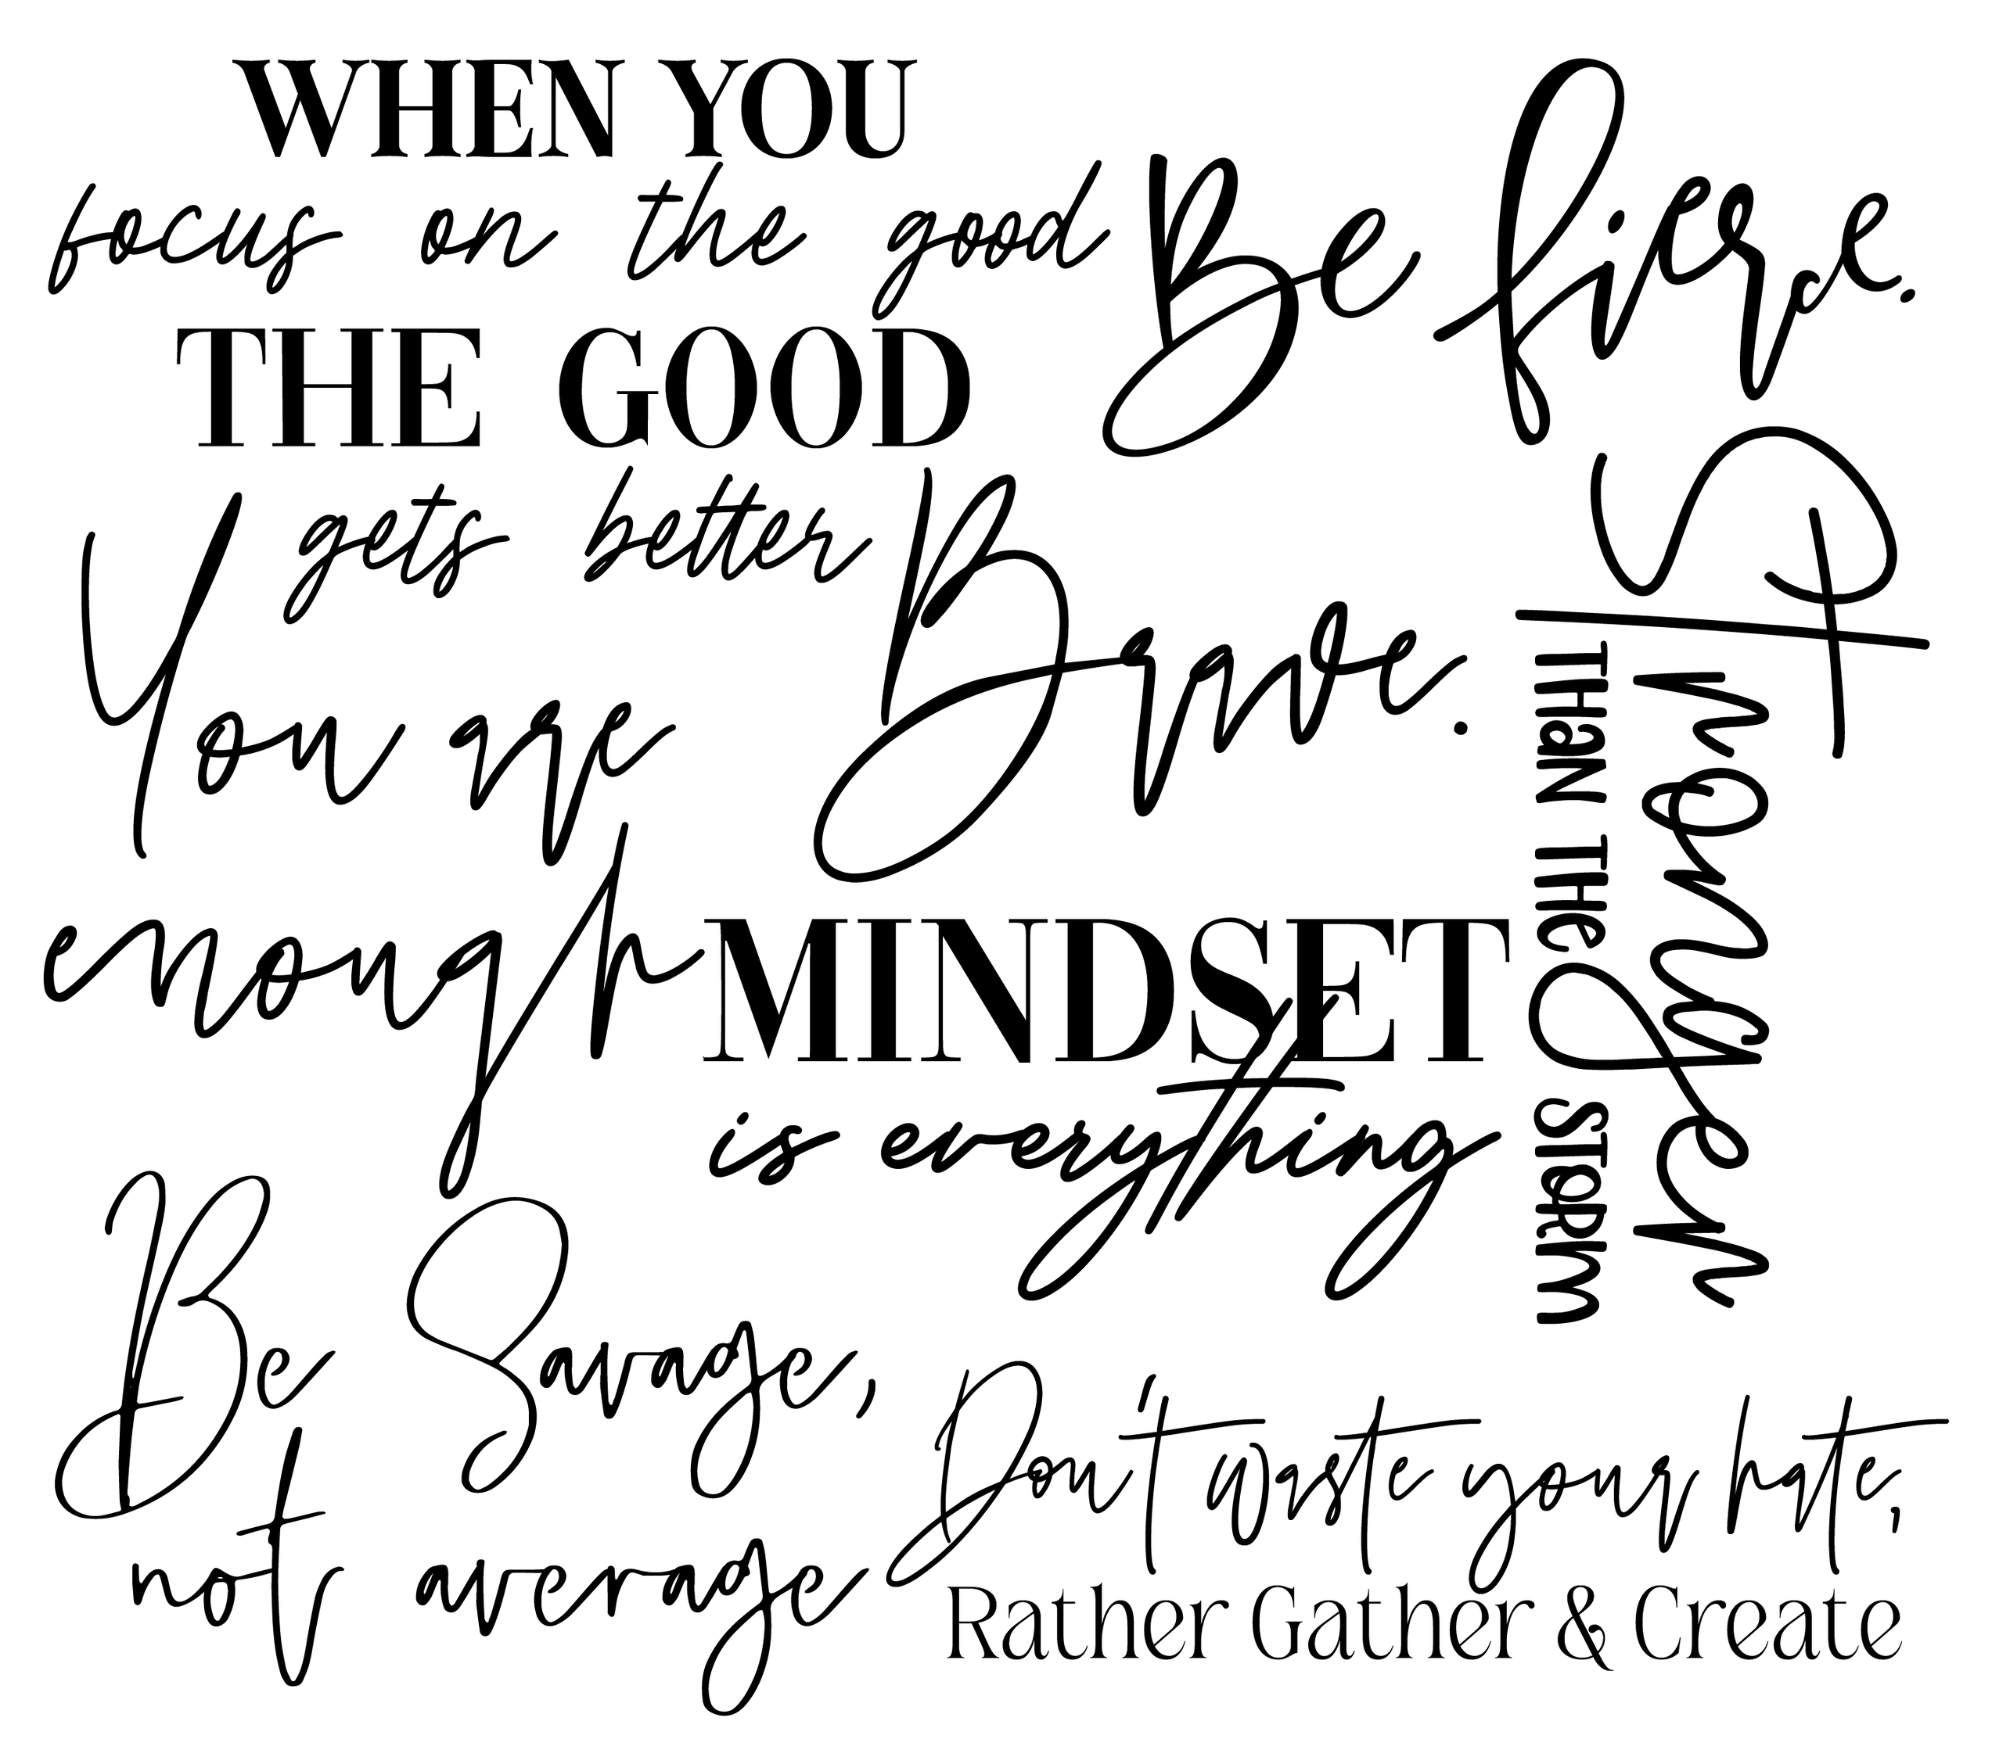 WHEN YOU
focus on the good
THE GOOD
gets better
Be fierce.
Brave.
You are
enough
Stronger
THaN THe STORM
MINDSET
is everything
Be Savage,
not average
Don't waste your hate,
Rather Gather & Create